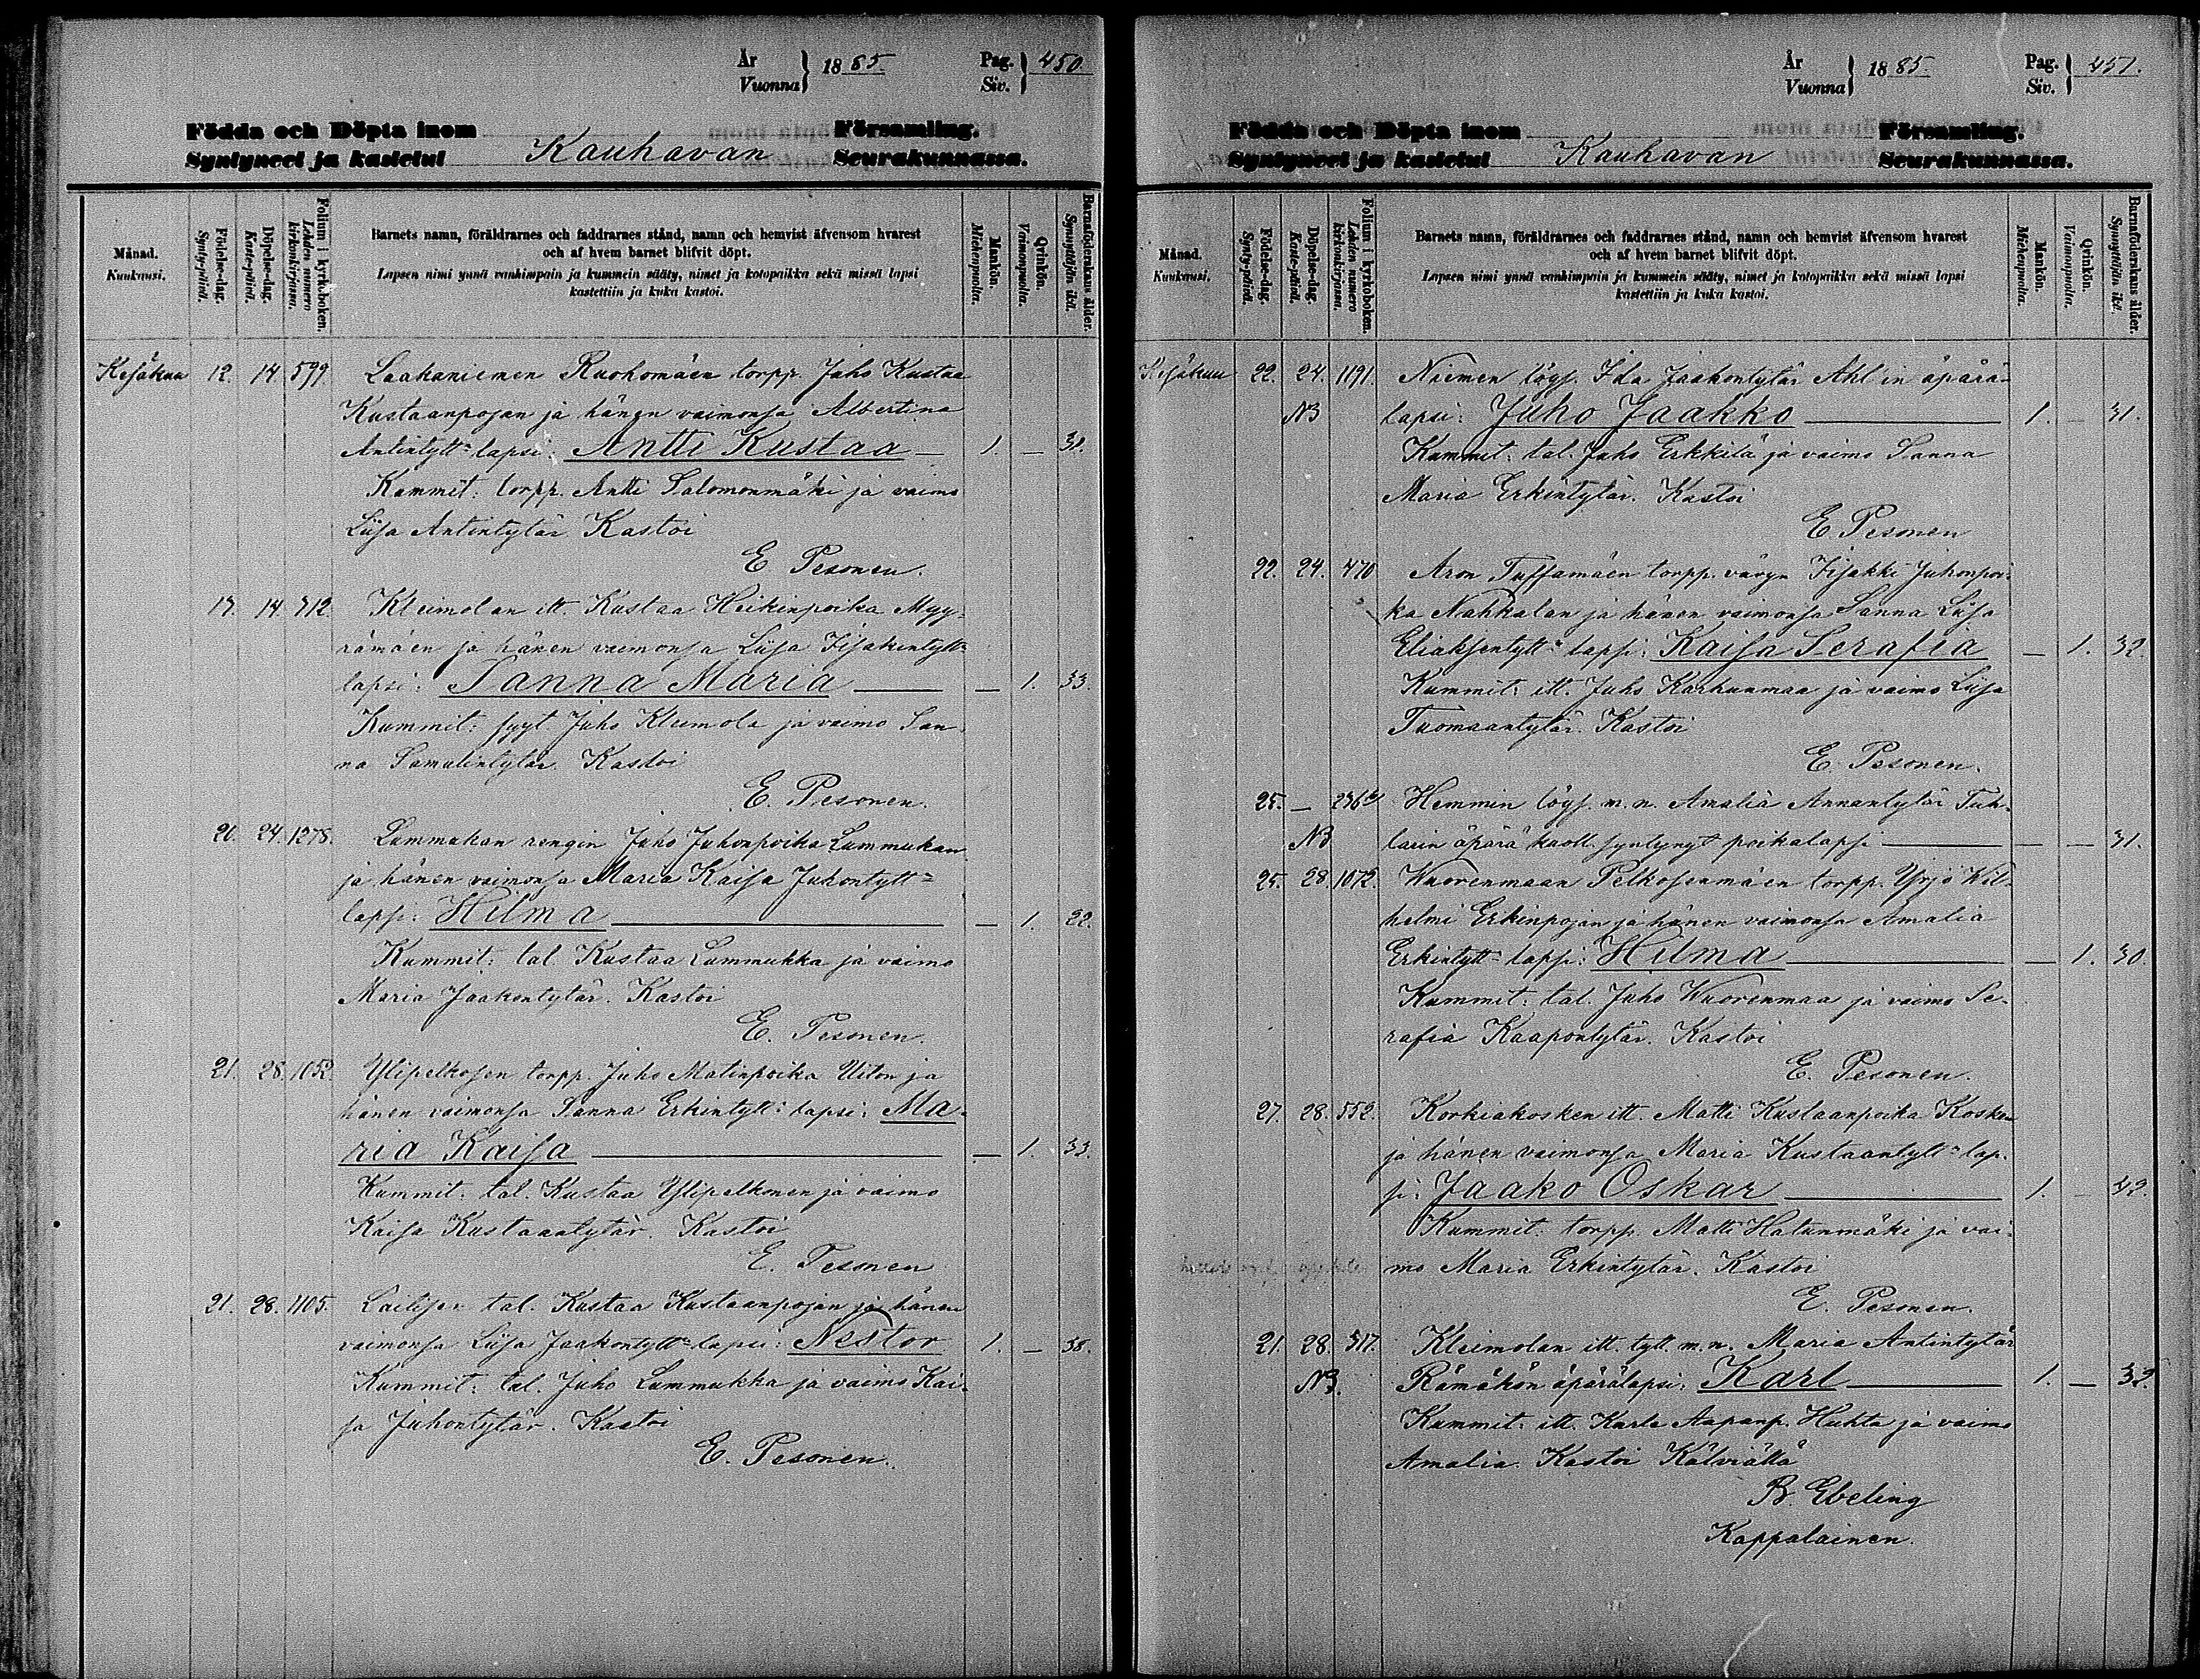 År
Vuonna } 1885
Pag.
Siv. } 450
Födda och Döpta inom Församling.
Syntyneet ja kastetut Kauhavan Seurakunnassa.
Månad.
Kuukausi.
Födelse-dag.
Synty-päivä.
Döpelse-dag.
Kaste-päivä.
Folium i kyrkoboken.
Lehden numero kirkonkirjassa.
Barnets namn, föräldrarnes och faddrarnes stånd, namn och hemvist äfvensom hvarest
och af hvem barnet blifvit döpt.
Lapsen nimi ynnä vanhimpain ja kummein sääty, nimet ja kotopaikka sekä missä lapsi
kastettiin ja kuka kastoi.
Mankön.
Miehenpuolta.
Qvinkön.
Vaimonpuolta.
Barnaföderskans ålder.
Synnyttäjän ikä.
Kesäkuu 12. 14. 599. Laakaniemen Ruohomäen torpp. Juho Kustaa
Kustaanpojan ja hänen vaimonsa Albertina
Antintytt= lapsi: Antti Kustaa — 1. — 31.
Kummit: torpp. Antti Salomonmäki ja vaimo
Liisa Antintytär Kastoi
E Pesonen.
14 712. Kleimolan itt. Kustaa Heikinpoika Myy-
rämäen ja hänen vaimonsa Liisa Iisakintytt=
lapsi: Sanna Maria — — 1. 33.
Kummit: syyt. Juho Kleimola ja vaimo San-
na Samulintytär. Kastoi
E. Pesonen.
20. 24. 1278. Lummukan rengin Juho Juhonpoika Lummukan
ja hänen vaimonsa Maria Kaisa Juhontytt=
lapsi: Hilma — — 1. 22.
Kummit: tal. Kustaa Lummukka ja vaimo
Maria Jaakontytär. Kastoi
E. Pesonen.
21. 28. 1052. Ylipelkosen torpp. Juho Matinpoika Uiton ja
hänen vaimonsa Sanna Erkintytt= lapsi: Ma-
ria Kaisa — — 1. 33.
Kummit: tal. Kustaa Ylipelkonen ja vaimo
Kaisa Kustaantytär. Kastoi
E. Pesonen
21. 28. 1105. Laitisen tal. Kustaa Kustaanpojan ja hänen
vaimonsa Liisa Jaakontytt= lapsi: Nestor 1. — 38.
Kummit: tal. Juho Lummukka ja vaimo Kai-
sa Juhontytär. Kastoi
E. Pesonen.
År
Vuonna } 1885
Pag.
Siv. } 451.
Födda och Döpta inom Församling.
Syntyneet ja kastetut Kauhavan Seurakunnassa.
Månad.
Kuukausi.
Födelse-dag.
Synty-päivä.
Döpelse-dag.
Kaste-päivä.
Folium i kyrkoboken.
Lehden numero kirkonkirjassa.
Barnets namn, föräldrarnes och faddrarnes stånd, namn och hemvist äfvensom hvarest
och af hvem barnet blifvit döpt.
Lapsen nimi ynnä vanhimpain ja kummein sääty, nimet ja kotopaikka sekä missä lapsi
kastettiin ja kuka kastoi.
Mankön.
Miehenpuolta.
Qvinkön.
Vaimonpuolta.
Barnaföderskans ålder.
Synnyttäjän ikä.
Kesäkuu 22. 24. 1191. Niemen löys. Ida Jaakontytär Ahl'in äpärä-
NB lapsi: Juho Jaakko — 1. — 31.
Kummit: tal. Juho Erkkilä ja vaimo Sanna
Maria Erkintytär. Kastoi
E Pesonen
22. 24. 470 Aron Tuffamäen torpp. vävyn Iisakki Juhonpoi-
ka Nahkalan ja hänen vaimonsa Sanna Liisa
Eliaksentytt= lapsi: Kaisa Serafia — 1. 32.
Kummit: itt. Juho Karhunmaa ja vaimo Liisa
Tuomaantytär. Kastoi
E. Pesonen.
25. — Hemmin löys. m. n. Amalia Annantytär
NB äpärä kuoll. syntynyt poikalapsi — — — 31.
25. 28. 1072. Wuorenmaan Pelkosenmäen torpp. Yrjö Wil-
helmi Erkinpojan ja hänen vaimonsa Amalia
Erkintytt= lapsi: Hilma — — 1. 30.
Kummit: tal. Juho Wuorenmaa ja vaimo Se-
rafia Kaapontytär. Kastoi
E. Pesonen.
27. 28. 552. Korkiakosken itt. Matti Kustaanpoika Kosken
ja hänen vaimonsa Maria Kustaantytt= lap-
si: Jaako Oskar — 1. — 42.
Kummit: torpp. Matti Hatunmäki ja vai-
mo Maria Erkintytär. Kastoi
E. Pesonen.
21. 28. 317. Kleimolan itt. tytt. m. n. Maria Antintytär
NB. Rämäkön äpärälapsi: Karl — 1. — 32.
Kummit: itt. Karle Aapanp. Huhta ja vaimo
Amalia. Kastoi Kälviällä
B. Ebeling
Kappalainen.